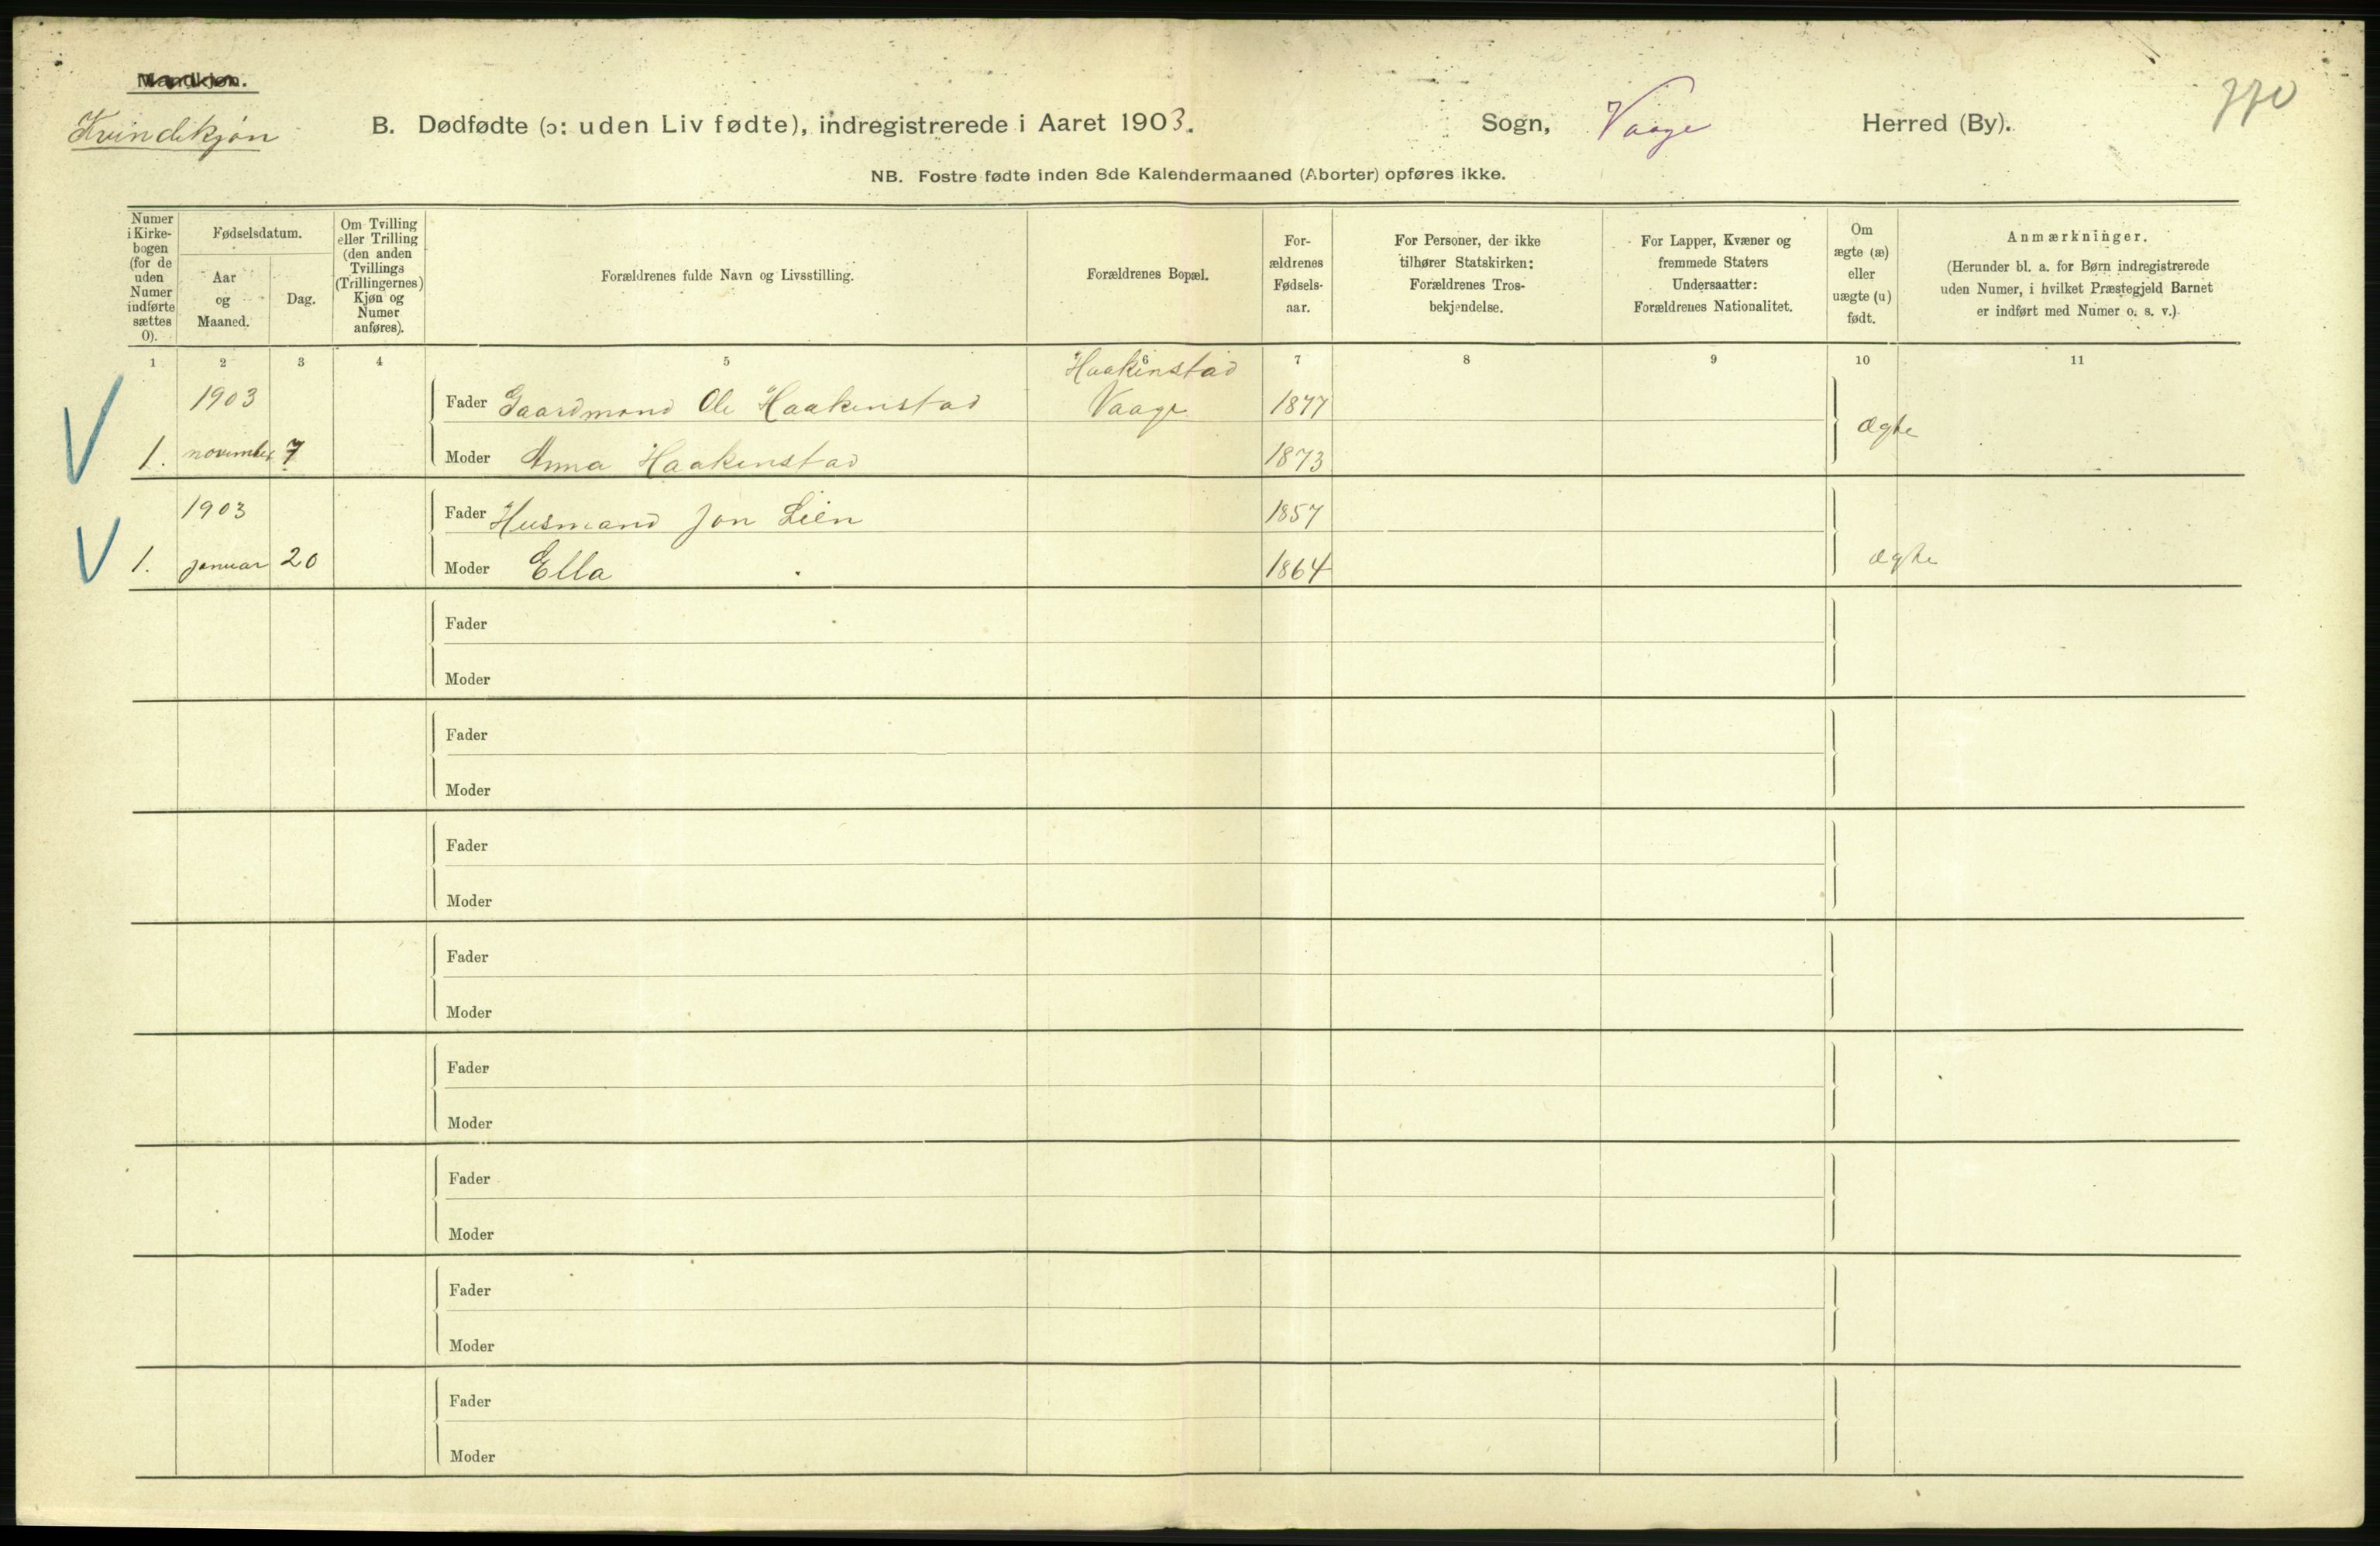 Mandkjøn.
Kvindekjøn
B. Dødfødte (ɔ: uden Liv fødte), indregistrerede i Aaret 1903. Sogn, Vaage Herred (By).
NB. Fostre fødte inden 8de Kalendermaaned (Aborter) opføres ikke.
Numer
i Kirke-
bogen
(for de
uden
Numer
indførte
sættes
0).
Fødselsdatum.
Aar
og
Maaned.
Dag.
Om Tvilling
eller Trilling
(den anden
Tvillings
(Trillingernes)
Kjøn og
Numer
anføres).
Forældrenes fulde Navn og Livsstilling.
Forældrenes Bopæl.
For-
ældrenes
Fødsels-
aar.
For Personer, der ikke
tilhører Statskirken:
Forældrenes Tros-
bekjendelse.
For Lapper, Kvæner og
fremmede Staters
Undersaatter:
Forældrenes Nationalitet.
Om
ægte (æ)
eller
uægte (u)
født.
Anmærkninger.
(Herunder bl. a. for Børn indregistrerede
uden Numer, i hvilket Præstegjeld Barnet
er indført med Numer o. s. v.)
1 2 3 4 5 6 7 8 9 10 11
Haakenstad
1903 Fader Gaardmand Ole Haakenstad Vaage 1877
ægte
1. november 7 Moder Anna Haakenstad 1873
1903 Fader Husmand Jon Lien 1857
1. januar 20 Moder Ella 1864 ægte
Fader
Moder
Fader
Moder
Fader
Moder
Fader
Moder
Fader
Moder
Fader
Moder
Fader
Moder
Fader
Moder